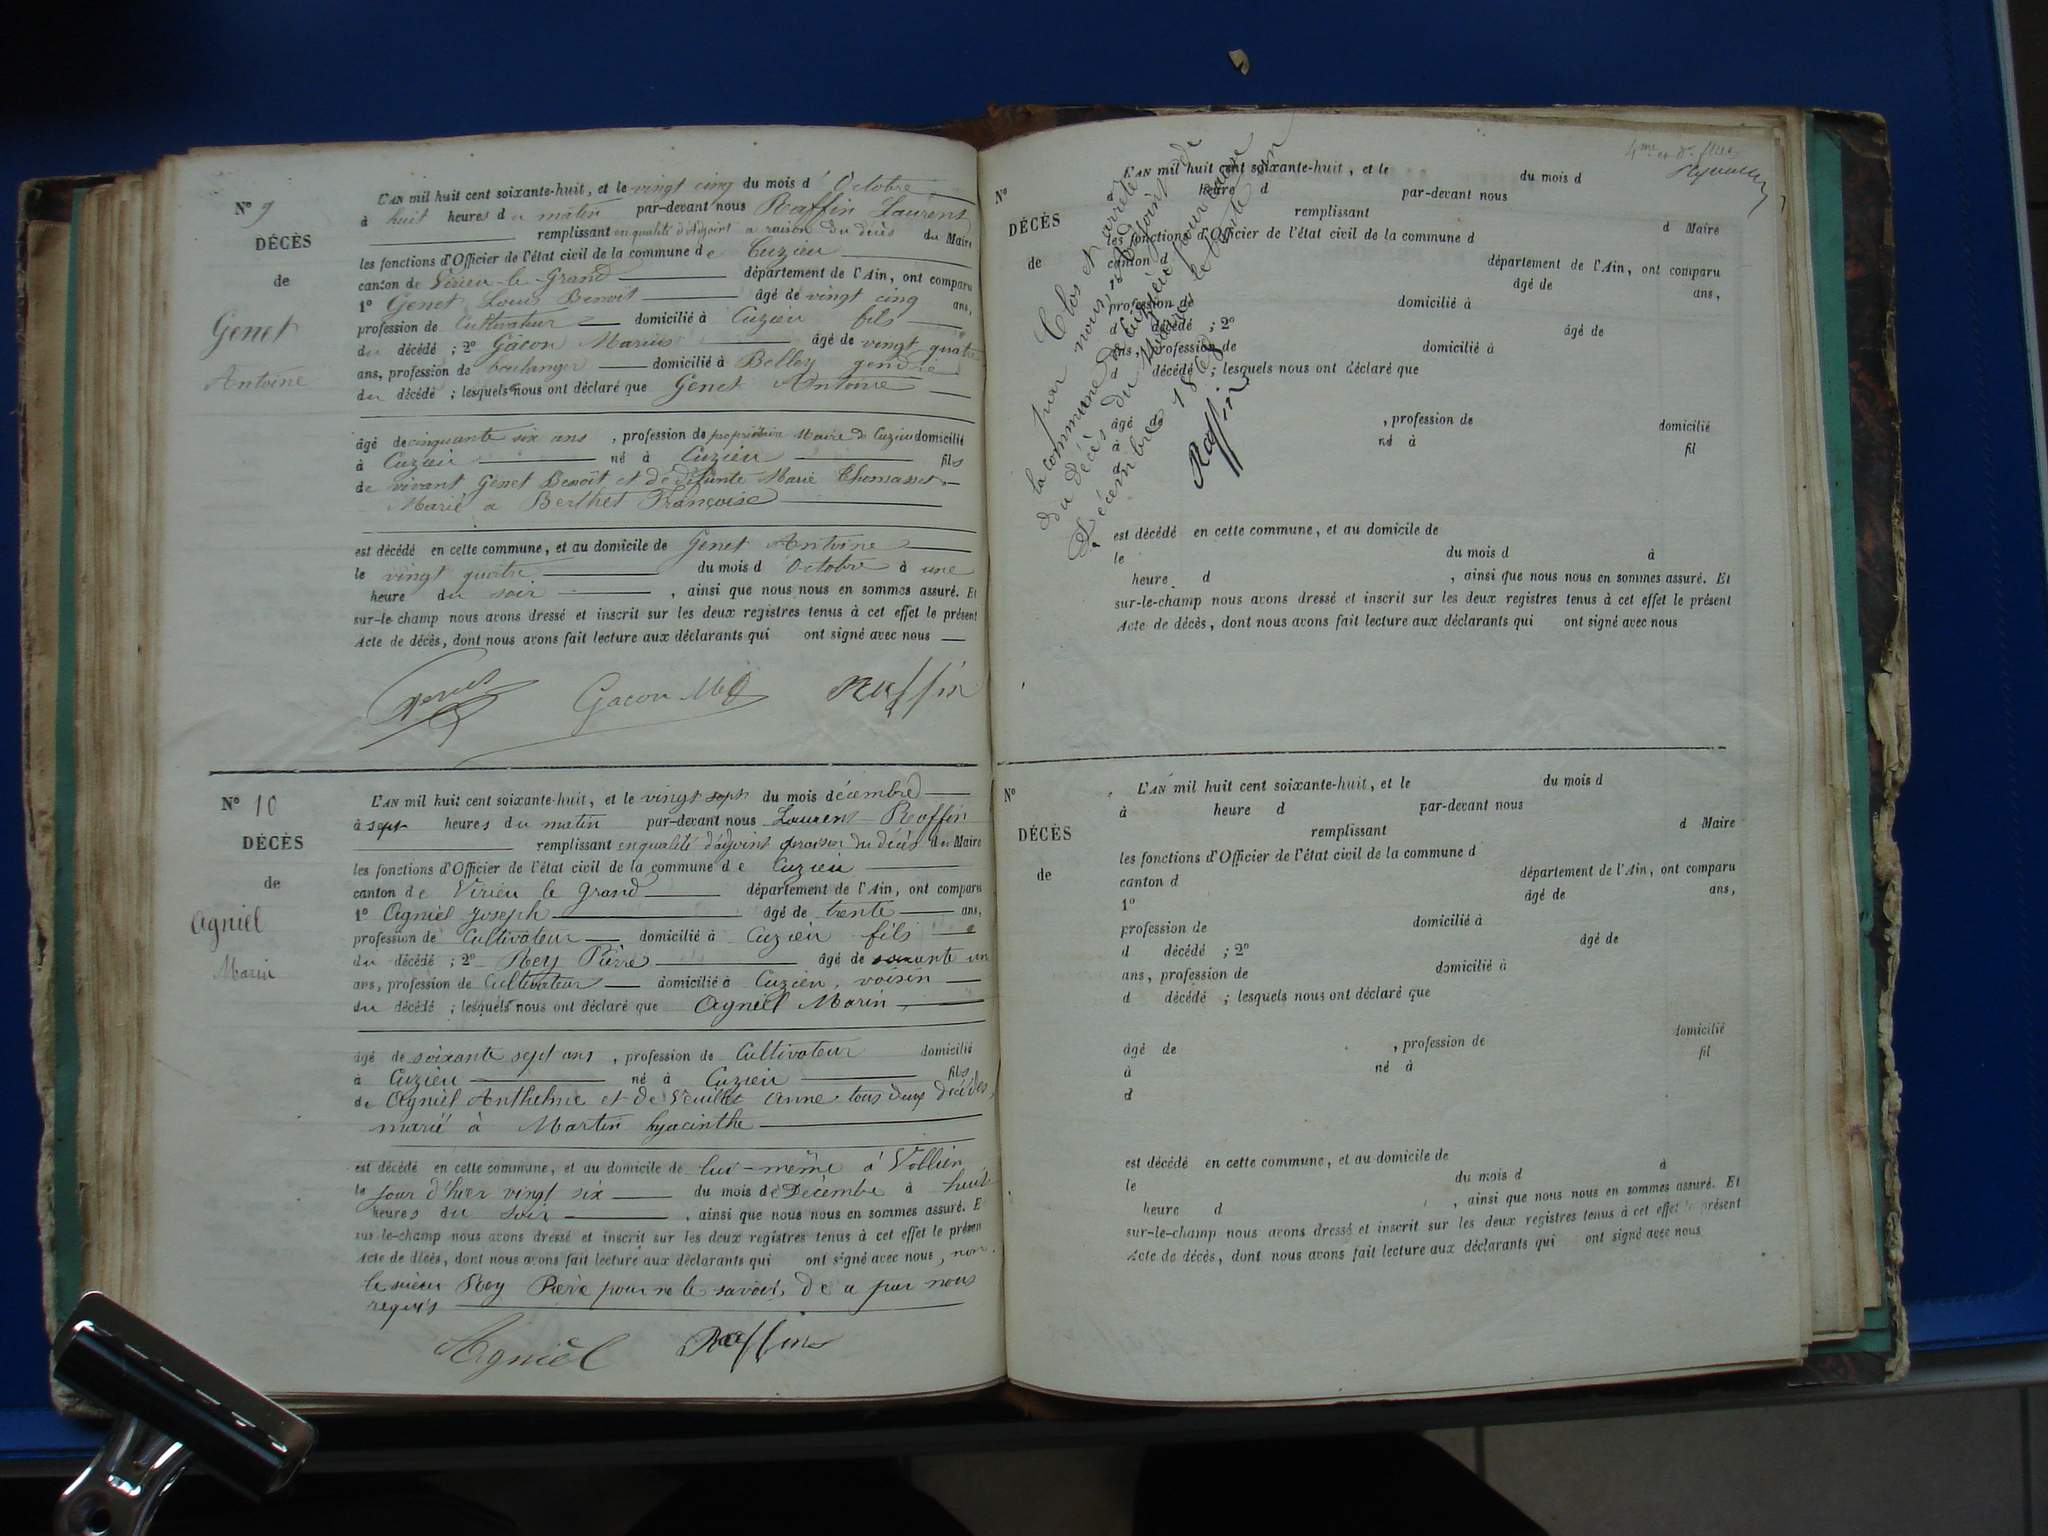 N° 9
DÉCÈS
de
Genet
Antoine
L'AN mil huit cent soixante-huit, et le vingt cinq du mois d'Octobre
à huit heures du matin par-devant nous Raffin Laurent
remplissant en qualité d'Adjoint a raison du décès du Maire
les fonctions d'Officier de l'état civil de la commune de Cuzieu
canton de Virieu-le-Grand département de l'Ain, ont comparu
1° Genet Louis Benoit âgé de vingt cinq ans,
profession de Cultivateur domicilié à Cuzieu fils
du décédé ; 2° Gacon Marius âgé de vingt quatre
ans, profession de boulanger domicilié à Belley gendre
du décédé ; lesquels nous ont déclaré que Genet Antoine
âgé de cinquante six ans, profession de propriétaire Maire de Cuzieu domicilié
à Cuzieu né à Cuzieu fils
de vivant Genet Benoît et de défunte Marie Thomasset
Marié a Berthet Françoise
est décédé en cette commune, et au domicile de Genet Antoine
le vingt quatre du mois d'Octobre à une
heure du soir, ainsi que nous nous en sommes assuré. Et
sur-le-champ nous avons dressé et inscrit sur les deux registres tenus à cet effet le présent
Acte de décès, dont nous avons fait lecture aux déclarants qui ont signé avec nous
Gacon Raffin
N° 10
DÉCÈS
de
Agniel
Marin
L'AN mil huit cent soixante-huit, et le vingt sept du mois décembre
à sept heures du matin par-devant nous Laurent Raffin
remplissant en qualité d'adjoint a raison du décès du Maire
les fonctions d'Officier de l'état civil de la commune de Cuzieu
canton de Virieu le grand département de l'Ain, ont comparu
1° Agniel Joseph âgé de trente ans,
profession de Cultivateur domicilié à Cuzieu fils
du décédé ; 2° Rey Pierre âgé de soixante un
ans, profession de Cultivateur domicilié à Cuzieu, voisin
du décédé ; lesquels nous ont déclaré que Agniel Marin
âgé de soixante sept ans, profession de Cultivateur domicilié
à Cuzieu né à Cuzieu fils
de Agniel Anthelme et de Veuillet Anne tous deux décédés,
marié à Martin hyacinthe
est décédé en cette commune, et au domicile de lui-même à Vollien
le jour d'hier vingt six du mois de Décembre à huit
heures du soir, ainsi que nous nous en sommes assuré. Et
sur-le-champ nous avons dressé et inscrit sur les deux registres tenus à cet effet le présent
Acte de décès, dont nous avons fait lecture aux déclarants qui ont signé avec nous, non
le sieur Rey Pierre pour ne le savoir, de a par nous
requis
Agniel Raffin
4me et dr
Clos et arrêté
par nous, adjoint de
la commune de Cuzieu pour cause
du décès du Maire le trente un
Décembre 1868
Raffin
N°
DÉCÈS
de
L'AN mil huit cent soixante-huit, et le du mois d
heure d par-devant nous
remplissant d Maire
les fonctions d'Officier de l'état civil de la commune d
canton d département de l'Ain, ont comparu
âgé de ans,
profession de domicilié à
d décédé ; 2° âgé de
ans, profession de domicilié à
d décédé ; lesquels nous ont déclaré que
âgé de, profession de domicilié
à né à fil
d
est décédé en cette commune, et au domicile de
le du mois d à
heure d, ainsi que nous nous en sommes assuré. Et
sur-le-champ nous avons dressé et inscrit sur les deux registres tenus à cet effet le présent
Acte de décès, dont nous avons fait lecture aux déclarants qui ont signé avec nous
N°
DÉCÈS
de
L'AN mil huit cent soixante-huit, et le du mois d
à heure d par-devant nous
remplissant d Maire
les fonctions d'Officier de l'état civil de la commune d
canton d département de l'Ain, ont comparu
1° âgé de ans,
profession de domicilié à
d décédé ; 2° âgé de
ans, profession de domicilié à
d décédé ; lesquels nous ont déclaré que
âgé de, profession de domicilié
à né à fil
d
est décédé en cette commune, et au domicile de
le du mois d à
heure d, ainsi que nous nous en sommes assuré. Et
sur-le-champ nous avons dressé et inscrit sur les deux registres tenus à cet effet le présent
Acte de décès, dont nous avons fait lecture aux déclarants qui ont signé avec nous